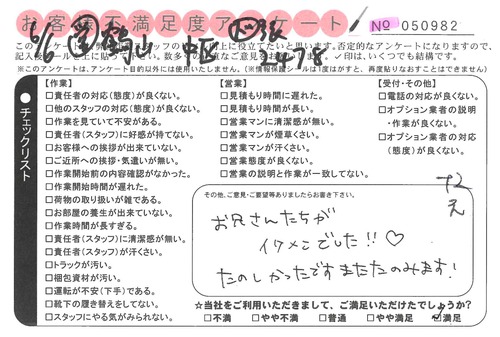 お客様不満足度アンケート
№ 050982
※このアンケートは、アンケート目的以外には使用いたしません。（情報保護シールは1度はがすと、再度貼りなおすことはできません）
チェックリスト
【作業】
□責任者の対応（態度）が良くない。
□他のスタッフの対応（態度）が良くない。
□作業を見ていて不安がある。
□責任者（スタッフ）に好感が持てない。
□お客様への挨拶が出来ていない。
□ご近所への挨拶・気遣いが無い。
□作業開始前の内容確認がなかった。
□作業開始時間が遅れた。
□荷物の取り扱いが雑である。
□お部屋の養生が出来ていない。
□作業時間が長すぎる。
□責任者（スタッフ）に清潔感が無い。
□責任者（スタッフ）が汗くさい。
□トラックが汚い。
□梱包資材が汚い。
□運転が不安（下手）である。
□靴下の履き替えをしてない。
□スタッフにやる気がみられない。
【営業】
□見積もり時間に遅れた。
□見積もり時間が長い。
□営業マンに清潔感が無い。
□営業マンが煙草くさい。
□営業マンが汗くさい。
□営業態度が良くない。
□営業の説明と作業が一致してない。
【受付・その他】
□電話の対応が良くない。
□オプション業者の説明
・作業が良くない。
□オプション業者の対応
（態度）が良くない。
その他、ご意見・ご要望等ありましたらお書き下さい。
お兄さんたちが
イケメンでした!! ♡
たのしかったですまたたのみます!
☆当社をご利用いただきまして、ご満足いただけたでしょうか?
□不満 □やや不満 □普通 □やや満足 ☑満足